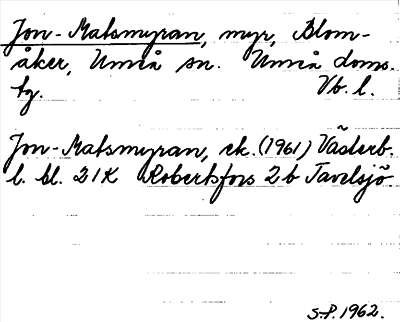 Jon-Matsmyran, myr, Blom-
åker, Umeå sn. Umeå doms.
hg. Vb. l.
Jon-Matsmyran, ek. (1961) Västerb.
l. bl. 21K Robertsfors 2b Tavelsjö
S-P. 1962.